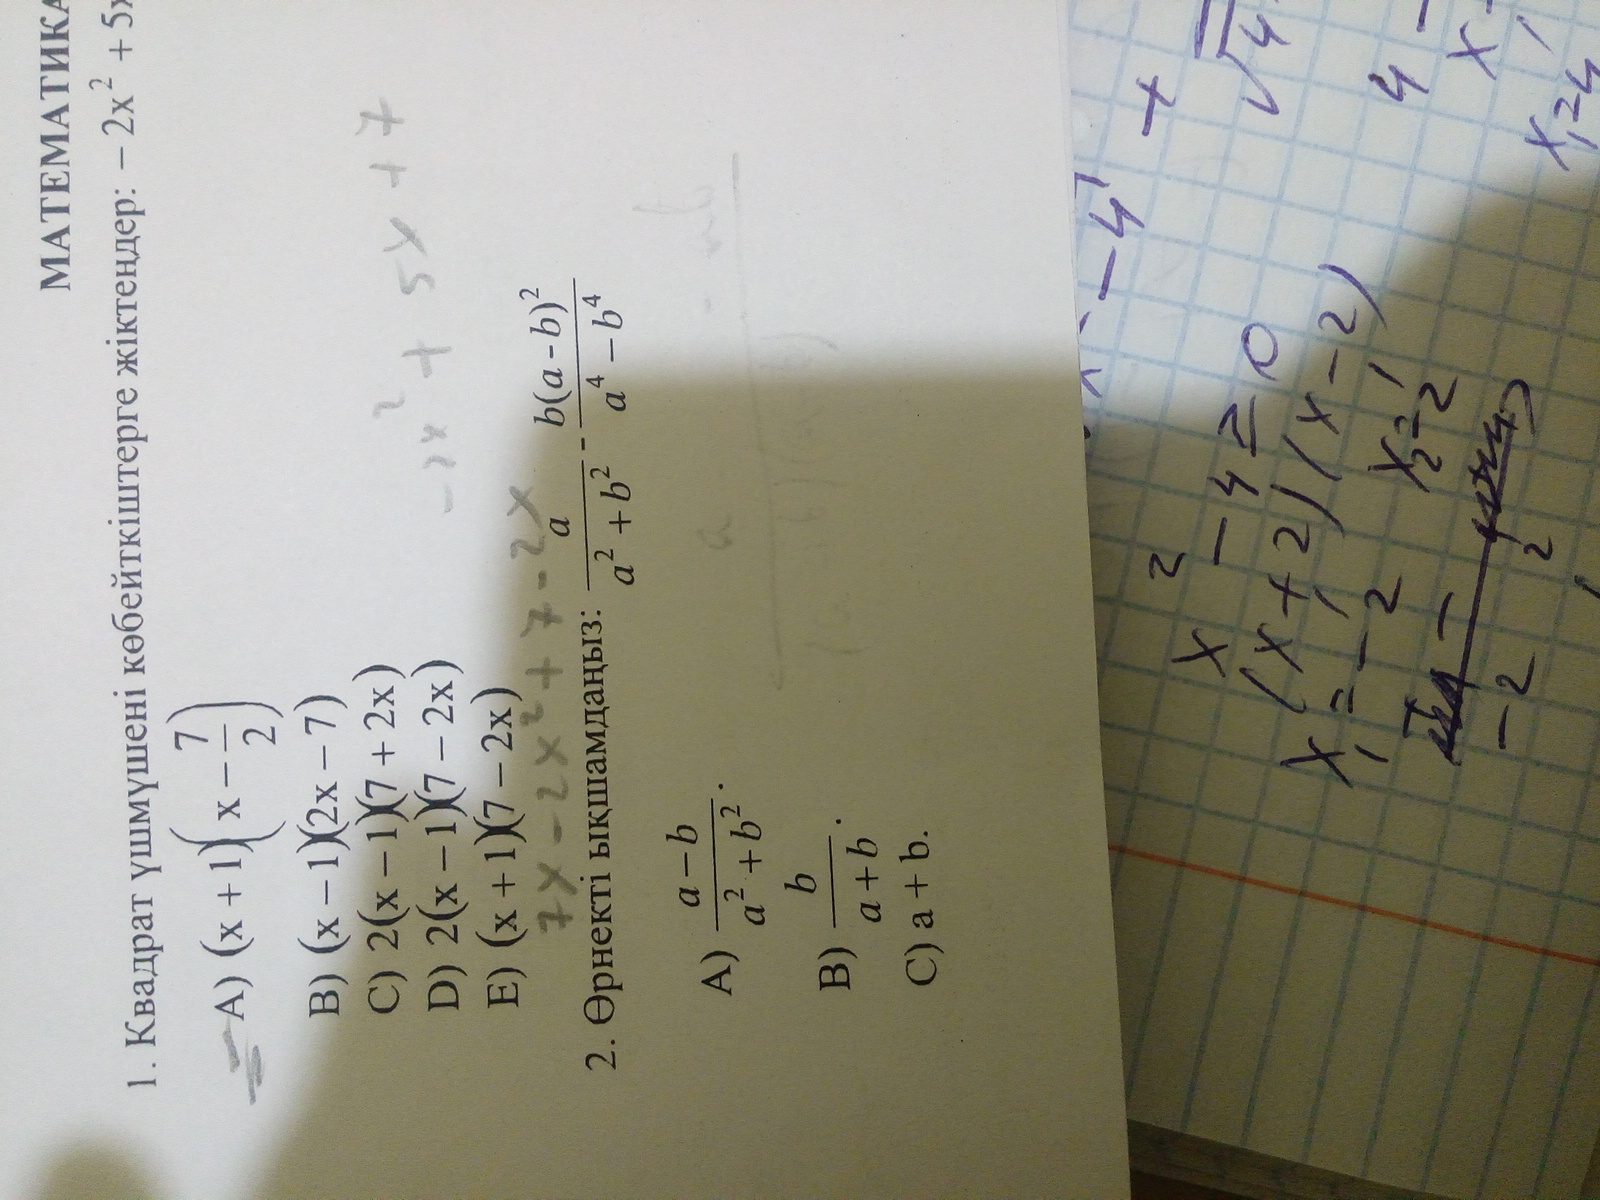 МАТЕМАТИКА
1. Квадрат үшмүшені көбейткіштерге жіктеңдер: – 2x² + 5x
A) (x + 1)(x – 7/2)
B) (x – 1)(2x – 7)
C) 2(x – 1)(7 + 2x)
D) 2(x – 1)(7 – 2x)
E) (x + 1)(7 – 2x)
-2x² + 5x + 7
7x - 2x² + 7 - 2x
2. Өрнекті ықшамдаңыз: a/(a² + b²) - b(a - b)²/(a⁴ – b⁴)
A) (a – b)/(a² + b²).
B) b/(a + b).
C) a + b.
x² - 4 = 0
(x + 2)(x - 2)
x₁ = -2, x₂ = 2,
-2 2